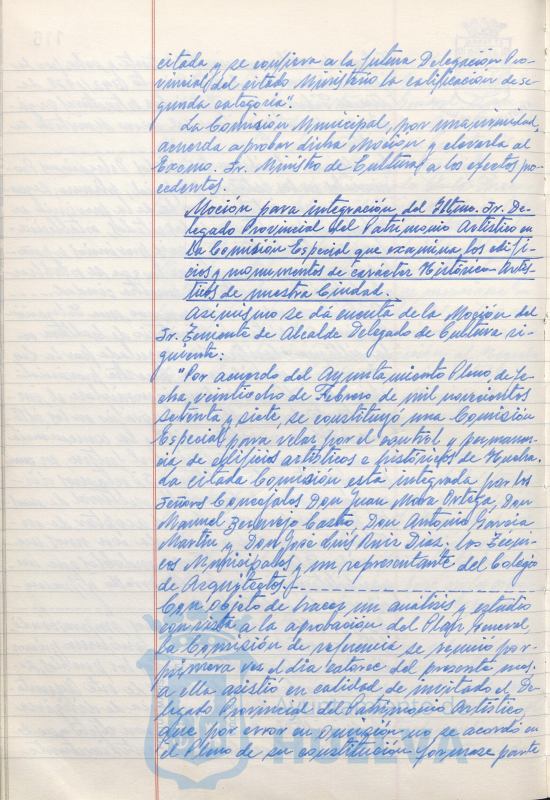 citada y se confiera a la futura Delegación Pro-
vincial del citado Ministerio la calificación de se-
gunda categoría".
La Comisión Municipal, por unanimidad,
acuerda aprobar dicha Moción y elevarla al
Excmo. Sr. Ministro de Cultura a los efectos pro-
cedentes.
Moción para integración del Iltmo. Sr. De-
legado Provincial del Patrimonio Artístico en
la Comisión Especial que examina los edifi-
cios y monumentos de carácter Histórico-Artís-
ticos de nuestra Ciudad.
Asimismo se dá cuenta de la Moción del
Sr. Teniente de Alcalde Delegado de Cultura si-
guiente:
"Por acuerdo del Ayuntamiento Pleno, de fe-
cha, veintiocho de Febrero de mil novecientos
setenta y siete, se constituyó una Comisión
Especial para velar por el control y permanen-
cia de edificios artísticos e históricos de Huelva.
La citada Comisión está integrada por los
Señores Concejales Don Juan Mora Ortega, Don
Manuel Castro, Don Antonio García
Martín y Don José Luis Ruiz Díaz. los Técni-
cos Municipales y un representante del Colegio
de Arquitectos.
Con objeto de hacer un análisis y estudio
con vista a la aprobación del Plan General,
la Comisión de referencia se reunió por
primera vez el día catorce del presente mes.
a ella asistió en calidad de invitado el De-
legado Provincial del Patrimonio Artístico,
que por error en omisión no se acordó en
el Pleno de su constitución formase parte